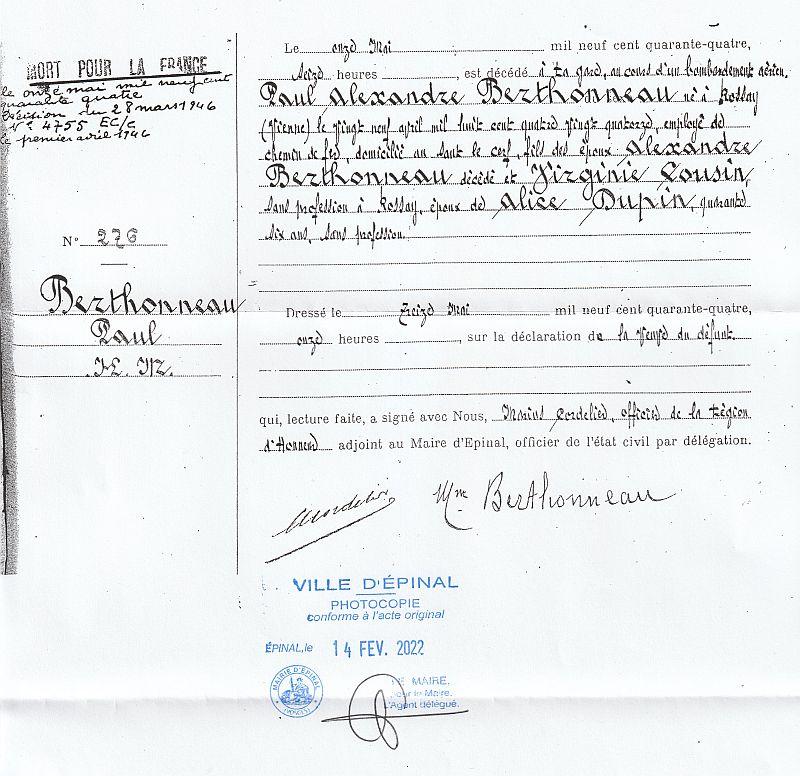 MORT POUR LA FRANCE
le onze mai mil neuf cent
quarante quatre
Décision du 28 mars 1946
N° 4755 EC/C
le premier avril 1946
N° 276
Berthonneau
Paul
Le onze Mai mil neuf cent quarante-quatre,
seize heures, est décédé à la gare, au cours d'un bombardement aérien,
Paul Alexandre Berthonneau né à Rossay
(Vienne) le vingt neuf avril mil huit cent quatre vingt quatorze, employé de
chemin de fer, domicilié au Saut le Cerf, fils des époux Alexandre
Berthonneau décédé et Virginie Cousin,
sans profession à Rossay, époux de Alice Dupin, quarante
six ans, sans profession.
Dressé le treize Mai mil neuf cent quarante-quatre,
onze heures, sur la déclaration de la veuve du défunt.
qui, lecture faite, a signé avec Nous, Marius Cordelier, officier de la Légion
d'Honneur adjoint au Maire d'Epinal, officier de l'état civil par délégation.
Mme Berthonneau
VILLE D'ÉPINAL
PHOTOCOPIE
conforme à l'acte original
ÉPINAL, le 14 FEV. 2022
MAIRIE D'ÉPINAL
(VOSGES)
LE MAIRE,
pour le Maire,
L'Agent délégué.